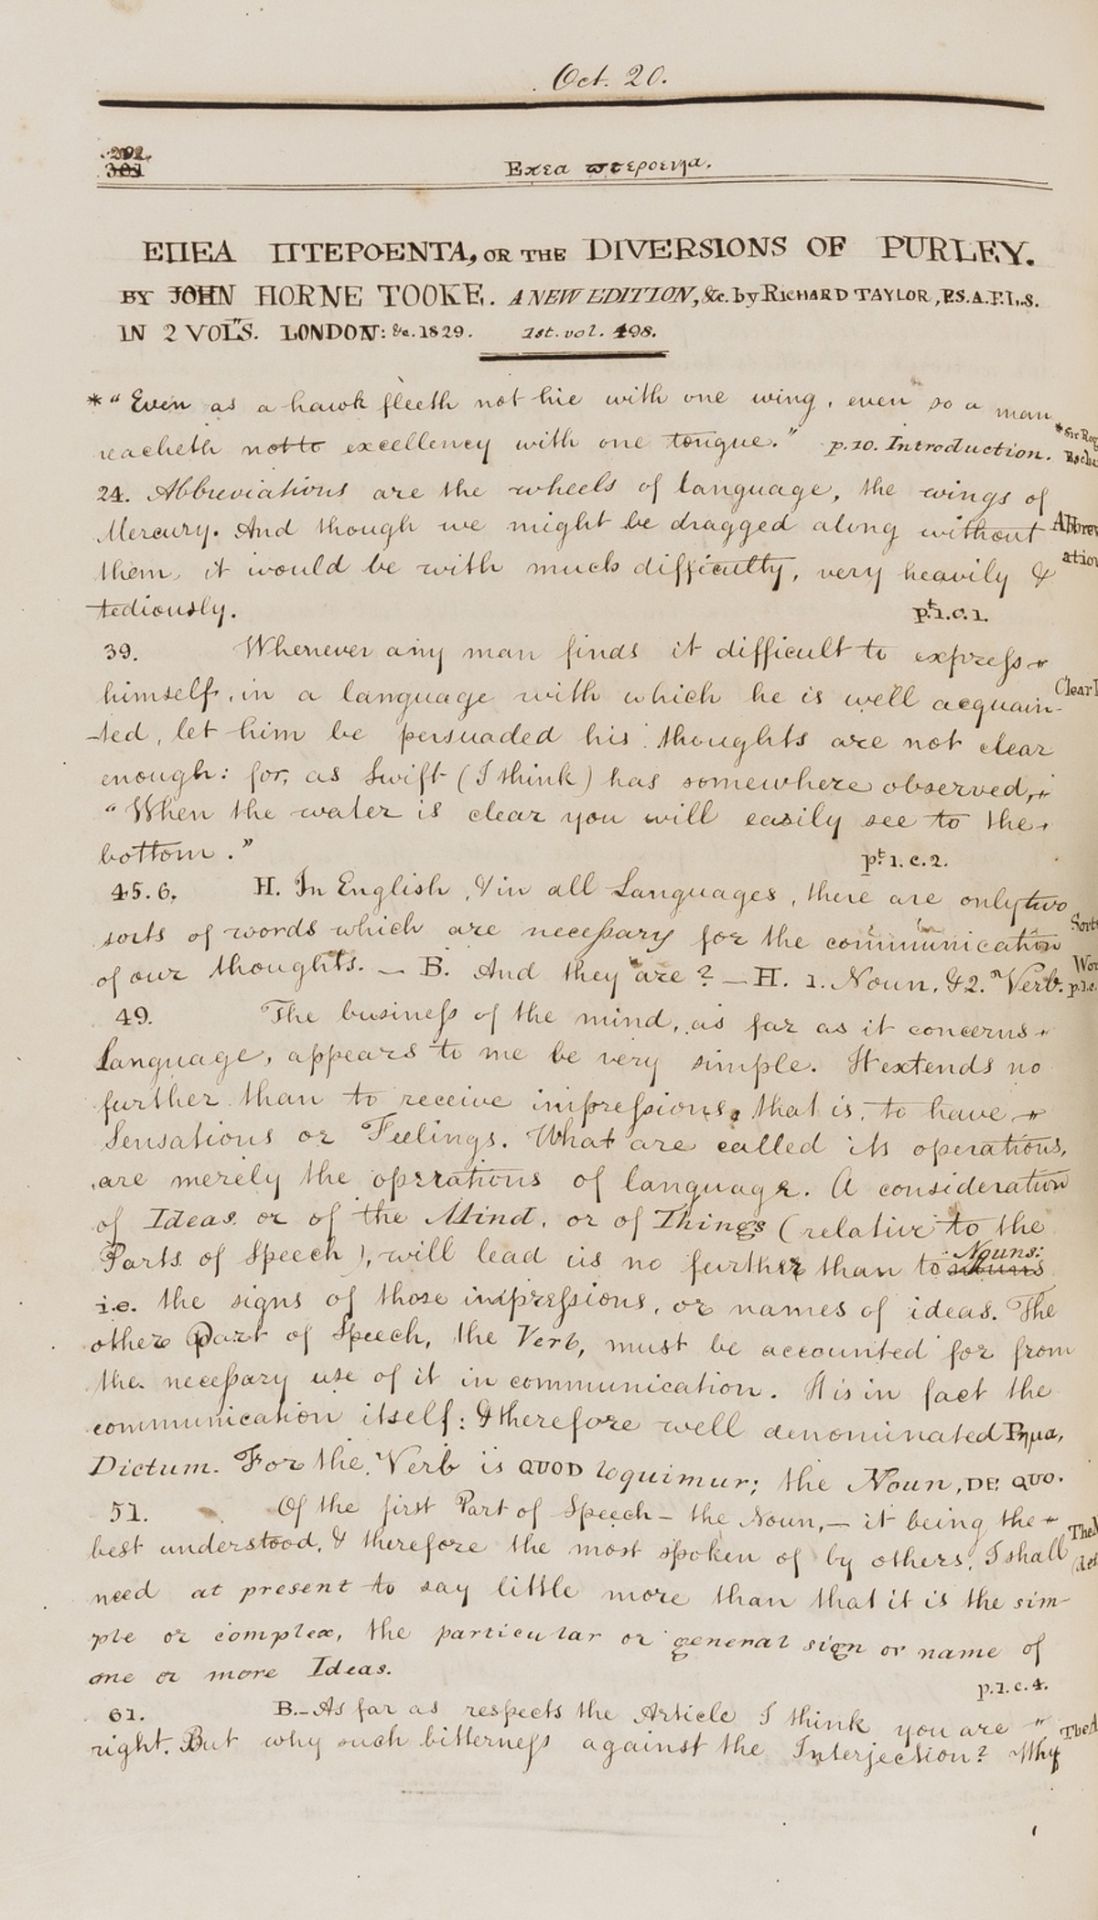 Oct. 20.
292.
301
Επεα πτεροεντα.
ΕΠΕΑ ΠΤΕΡΟΕΝΤΑ, OR THE DIVERSIONS OF PURLEY.
BY JOHN HORNE TOOKE. A NEW EDITION, &c. by RICHARD TAYLOR, F.S.A. F.L.S.
IN 2 VOLS. LONDON: &c. 1829. 1st. vol. 498.
*" Even as a hawk fleeth not hie with one wing, even so a man
reacheth not to excellency with one tongue." p.10. Introduction.
*Sir Rog
24. Abbreviations are the wheels of language, the wings of
Mercury. And though we might be dragged along without
Abbrev
them, it would be with much difficulty, very heavily &
ation
tediously. pt.1.c.1.
39. Whenever any man finds it difficult to express
himself, in a language with which he is well acquain-
Clear
-ted, let him be persuaded his thoughts are not clear
enough: for, as Swift (I think) has somewhere observed,
"When the water is clear you will easily see to the
bottom." pt.1.c.2.
45.6. H. In English, & in all Languages, there are only two
Sort
sorts of words which are necessary for the communication
of our thoughts. — B. And they are? — H. 1. Noun, & 2. Verb.
Wor
p.1.c.
49. The business of the mind, as far as it concerns
Language, appears to me be very simple. It extends no
further than to receive impressions, that is, to have
Sensations or Feelings. What are called its operations,
are merely the operations of language. A consideration
of Ideas or of the Mind, or of Things (relative to the
Parts of Speech), will lead us no further than to nouns Nouns:
i.e. the signs of those impressions, or names of ideas. The
other Part of Speech, the Verb, must be accounted for from
the necessary use of it in communication. It is in fact the
communication itself: & therefore well denominated Ρημα,
Dictum. For the Verb is QUOD loquimur; the Noun, DE QUO.
51. Of the first Part of Speech – the Noun, — it being the
The
best understood, & therefore the most spoken of by others, I shall
need at present to say little more than that it is the sim-
ple or complex, the particular or general sign or name of
one or more Ideas. p.1.c.4.
61. B.– As far as respects the Article I think you are
The A
right. But why such bitterness against the Interjection? Why